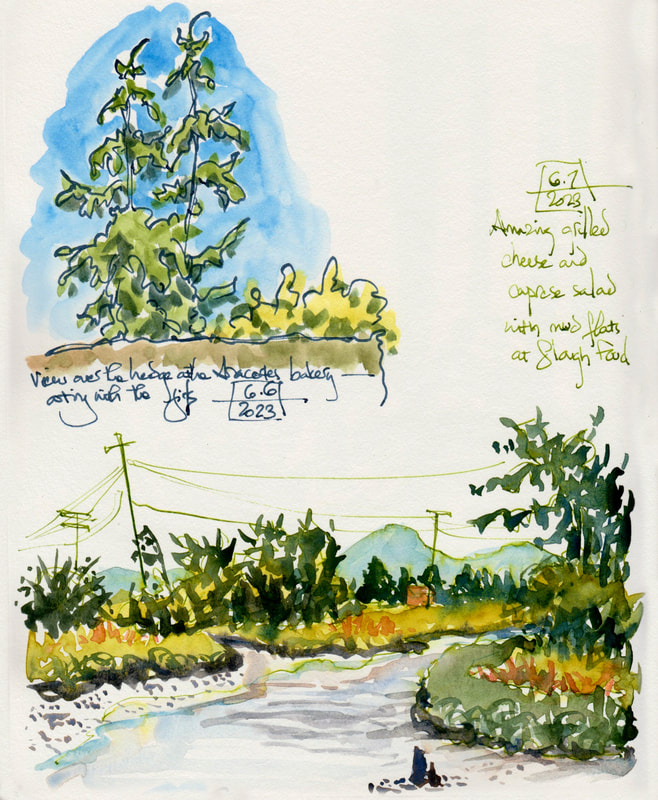 View over the hedge at the Anacortes bakery
6.6
2023
6.7
2023
Amazing grilled
cheese and
caprese salad
with mud flats
at Slough Food